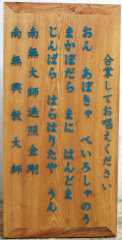 合掌してお唱えください
おん あぼきゃ べいろしゃのう
まかぼだら まに はんどま
じんばら はらばりたや うん
南無大師遍照金剛
南無興教大師